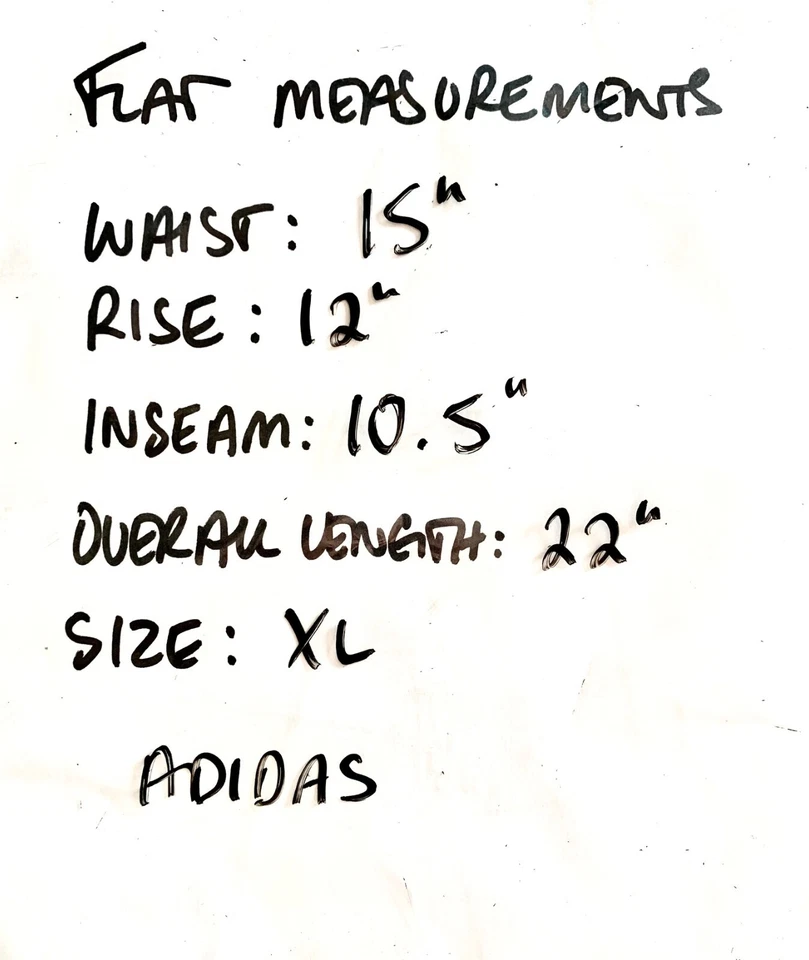 FLAT MEASUREMENTS
WAIST: 15"
RISE: 12"
INSEAM: 10.5"
OVERALL LENGTH: 22"
SIZE: XL
ADIDAS